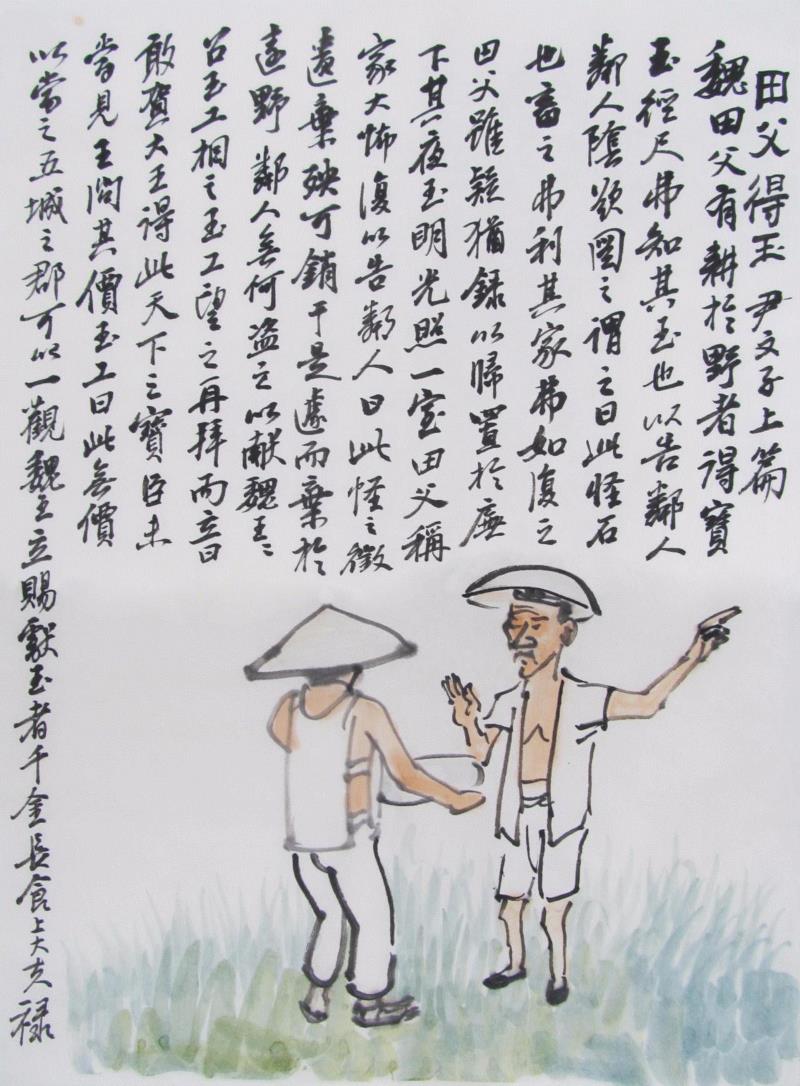 田父得玉 尹文子上篇
魏田父有耕於野者得寶
玉徑尺弗知其玉也以告鄰人
鄰人陰欲圖之謂之曰此怪石
也畜之弗利其家弗如復之
田父雖疑猶錄以歸置於廡
下其夜玉明光照一室田父稱
家大怖復以告鄰人曰此怪之徵
遄棄殃可銷于是遽而棄於
遠野鄰人無何盜之以獻魏王〻
召玉工相之玉工望之再拜而立曰
敢賀大王得此天下之寶臣未
嘗見王問其價玉工曰此無價
以當之五城之都可以一觀魏王立賜獻玉者千金長食上大夫祿